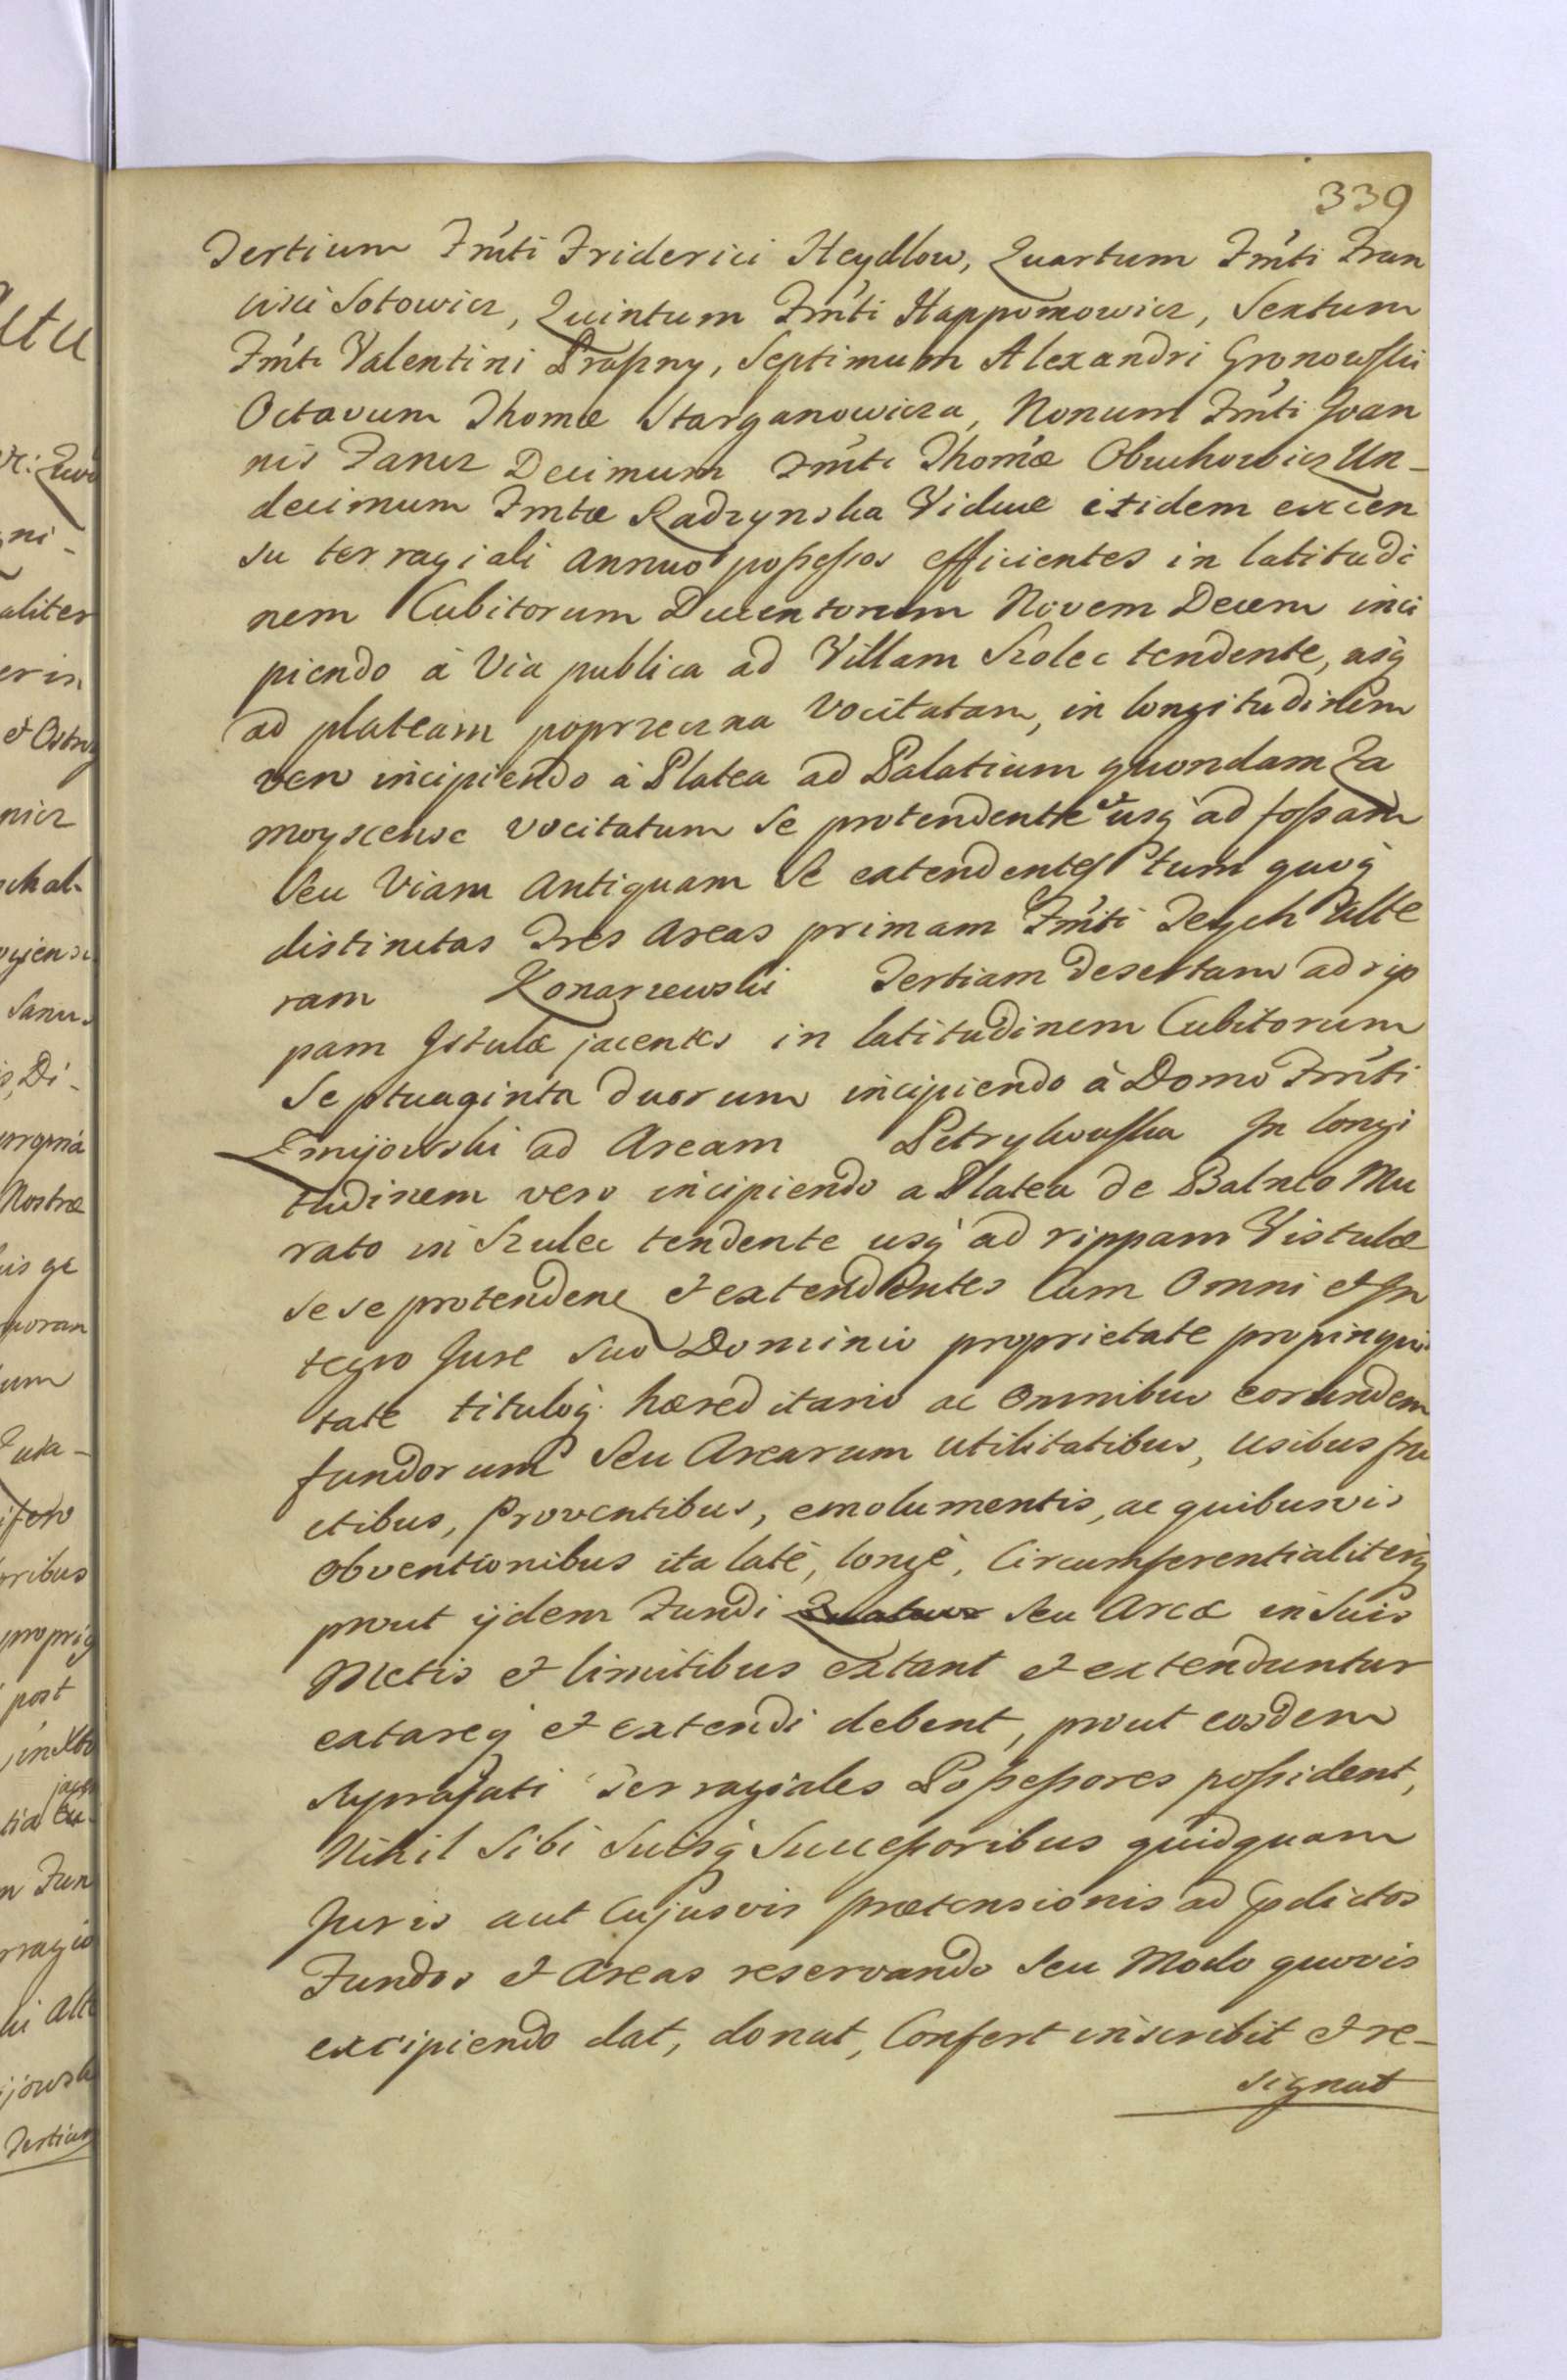 339
Tertium Fmti Friderici Heydlow, Quartum Fmti Fran
cisci Sotowicz, Quintum Fmti Happomowicz, Sextum
Fmti Valentini Praßny, Septimum Alexandri Gronowski
Octavum Thomæ Starganowicza, Nonum Fmti Joan
nis Zancz Decimum Fmti Thomæ Obuchowicz Un-
decimum Fmtæ Radzynska Viduæ itidem ex cen
su terragiali annuo poßeßos efficientes in latitudi
nem Cubitorum Ducentorum Novem Decem inci
piendo à Via publica ad Villam Szolec tendente, usq
ad plateam poprzeczna Vocitatam, in longitudinem
vero incipiendo à Platea ad Palatium quondam Za
moyscense vocitatum se protendente et usq ad foßam
seu Viam Antiquam se extendentes tum quoq
distinctas Tres Areas primam Fmti Teych Alte
ram Konarzewski Tertiam desertam ad rip
pam Istulæ jacentes in latitudinem Cubitorum
Septuaginta duorum incipiendo à Domo Fmti
Zmijowski ad Aream Petrykowska In longi
tudinem vero incipiendo a Platea de Balneo Mu
rato in Szulec tendente usq ad rippam Vistulæ
sese protenden et extendentes Cum Omni et In
tegro Jure suo Dominio proprietate propinqui
tate tituloq hæreditario ac omnibus eorundem
fundorum seu Arearum utilitatibus, usibus fru
ctibus, Proventibus, emolumentis, ac quibusvis
obventionibus ita latè, longè, Circumferentialiterq
prout ijdem Fundi seu Areæ in suis
Metis et limitibus extant et extenduntur
extareq et extendi debent, prout eosdem
suprafati Terragiales Poßeßores poßident,
Nihil sibi suisq Succeßoribus quidquam
Juris aut Cujusvis prætensionis ad pdictos
Fundos et Areas reservando seu Modo quovis
excipiendo dat, donat, Confert inscribit et re-
signat